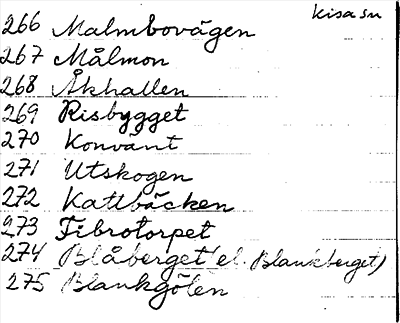 Kisa sn
266 Malmbovägen
267 Målmon
268 Åkhallen
269 Risbygget
270 Konvänt
271 Utskogen
272 Kattbäcken
273 Fibrotorpet
274 Blåberget (el. Blankberget)
275 Blankgölen